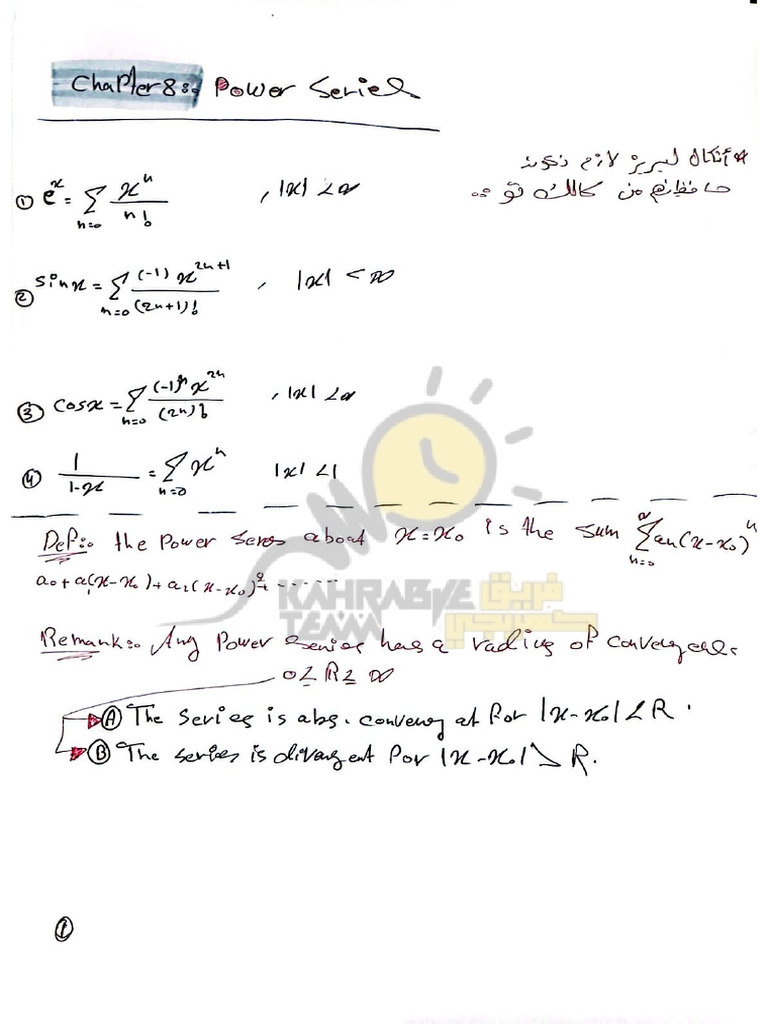 Chapter 8: Power Series
*أشكال لسيريز لازم نكون
حافظينهم من كالك تو ..
① e^x = Σ_{n=0} x^n / n! , |x| < ∞
② sin x = Σ_{n=0} (-1) x^{2n+1} / (2n+1)! , |x| < ∞
③ cos x = Σ_{n=0} (-1)^n x^{2n} / (2n)! , |x| < ∞
④ 1 / 1-x = Σ_{n=0} x^n |x| < 1
Def:. the Power Seres about x = x_0 is the sum Σ_{n=0}^{∞} a_n (x-x_0)^n
a_0 + a_1(x-x_0) + a_2(x-x_0)^2 + ------
KAHRABIYE TEAM فريق كهربجي
Remark:. Any Power Series has a radius of convergenc.
0 ≤ R ≤ ∞
Ⓐ The Series is abs. converg at for |x-x_0| < R .
Ⓑ The series is divergent for |x-x_0| > R.
①